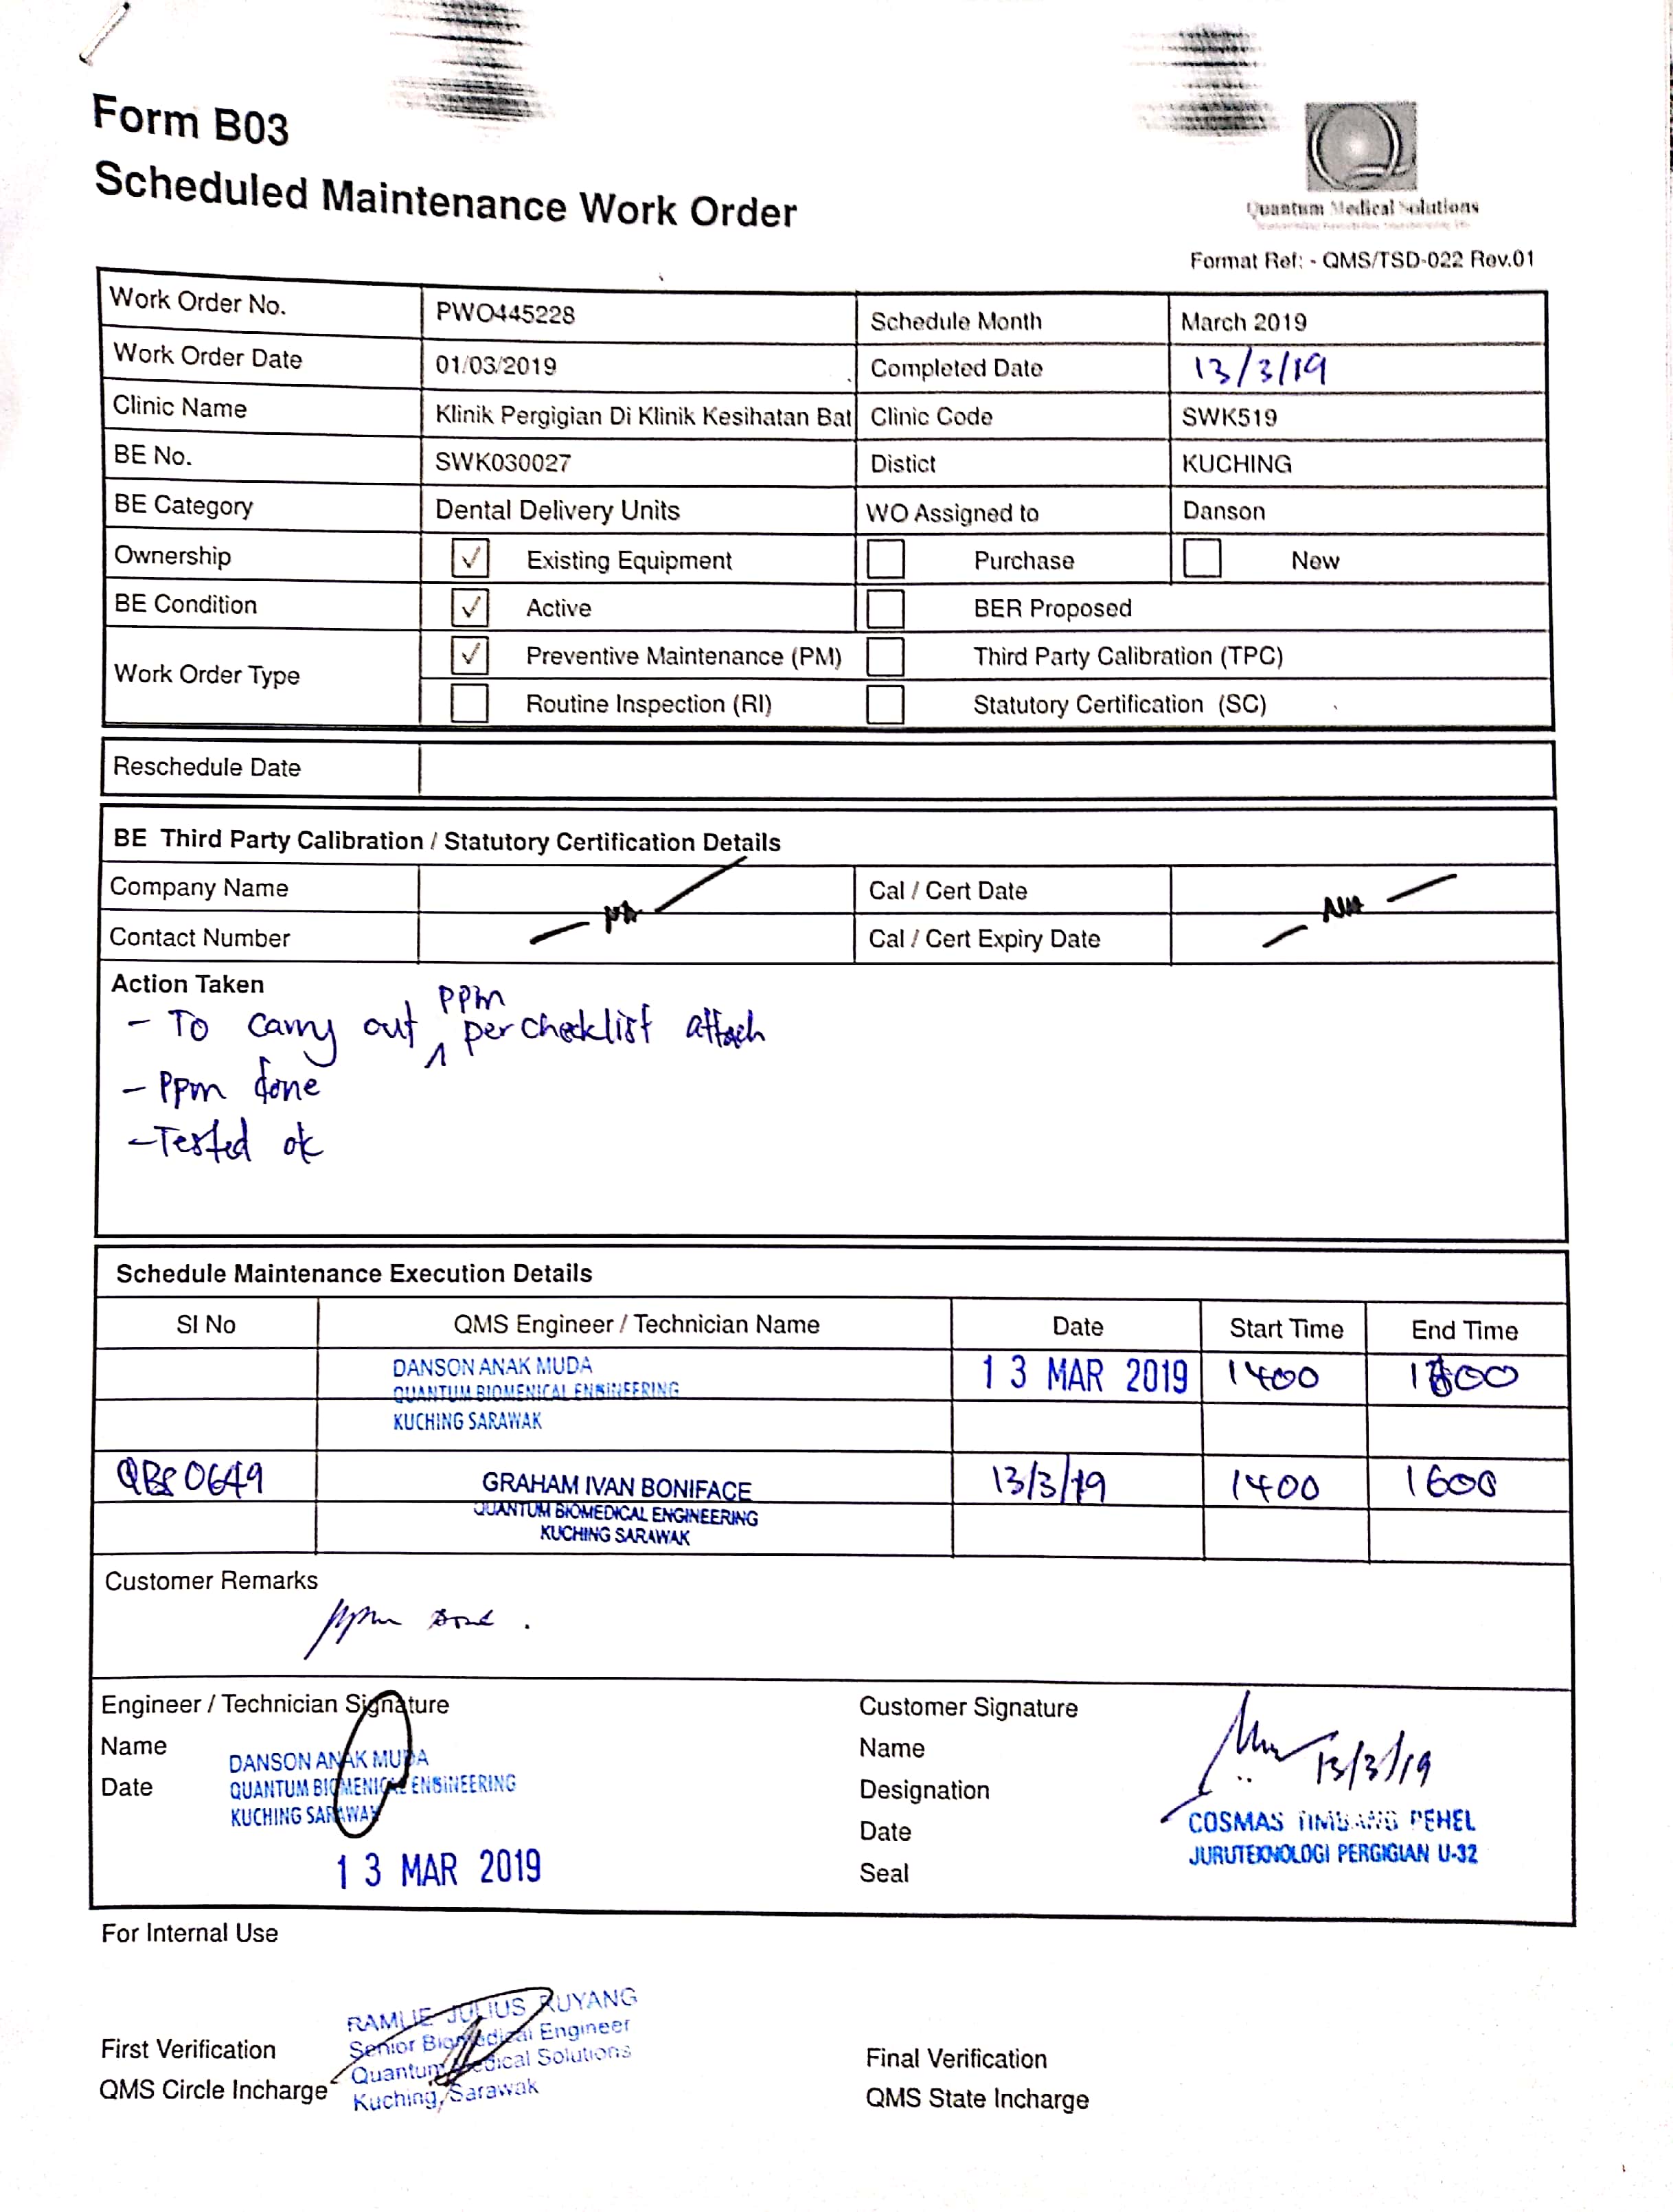 Form B03
Scheduled Maintenance Work Order
Quantum Medical Solutions
Format Ref: - QMS/TSD-022 Rev.01
Work Order No. PWO445228 Schedule Month March 2019
Work Order Date 01/03/2019 Completed Date 13/3/19
Clinic Name Klinik Pergigian Di Klinik Kesihatan Bat Clinic Code SWK519
BE No. SWK030027 Distict KUCHING
BE Category Dental Delivery Units WO Assigned to Danson
Ownership ✓ Existing Equipment Purchase New
BE Condition ✓ Active BER Proposed
Work Order Type ✓ Preventive Maintenance (PM) Third Party Calibration (TPC)
Routine Inspection (RI) Statutory Certification (SC)
Reschedule Date
BE Third Party Calibration / Statutory Certification Details
Company Name Cal / Cert Date
NA NA
Contact Number Cal / Cert Expiry Date
Action Taken
- To carry out ppm per checklist attach
- Ppm done
- Tested ok
Schedule Maintenance Execution Details
SI No QMS Engineer / Technician Name Date Start Time End Time
DANSON ANAK MUDA 13 MAR 2019 1400
QUANTUM BIOMENICAL ENGINEERING
KUCHING SARAWAK
QBS0649 GRAHAM IVAN BONIFACE 13/3/19 1400 1600
QUANTUM BIOMEDICAL ENGINEERING
KUCHING SARAWAK
Customer Remarks
ppm done.
Engineer / Technician Signature Customer Signature
Name Name
Date Designation
Date
Seal
DANSON ANAK MUDA
QUANTUM BIOMENICAL ENGINEERING
KUCHING SARAWAK
13 MAR 2019
13/3/19
COSMAS PEHEL
JURUTEKNOLOGI PERGIGIAN U-32
For Internal Use
RAMLIE JULIUS RUYANG
Senior Biomedical Engineer
Quantum Medical Solutions
Kuching, Sarawak
First Verification Final Verification
QMS Circle Incharge QMS State Incharge